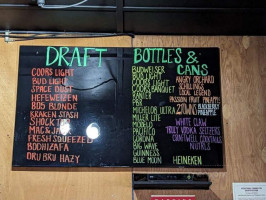 DRAFT
COORS LIGHT
BUD LIGHT
SPACE DUST
HEFEWEIZEN
BOB BLONDE
KRAKEN STASH
SHOCK TOP
MAC & JACK
FRESH SQUEEZED
BODHIZAFA
DRU BRU HAZY
BOTTLES &
CANS
BUDWEISER
BUD LIGHT
COORS LIGHT
COORS BANQUET
PBR
MICHELOB ULTRA
MILLER LITE
MODELO
PACIFICO
CORONA
BIG WAVE
GUINNESS
BLUE MOON
ANGRY ORCHARD
SCHILLINGS
LOCAL LEGEND
PASSION FRUIT PINEAPPLE
2 TOWNS
BLACKBERRY
PINEAPPLE
WHITE CLAW
TRULY VODKA SELTZERS
CRAFTWELL COCKTAILS
NUTRLS
HEINEKEN